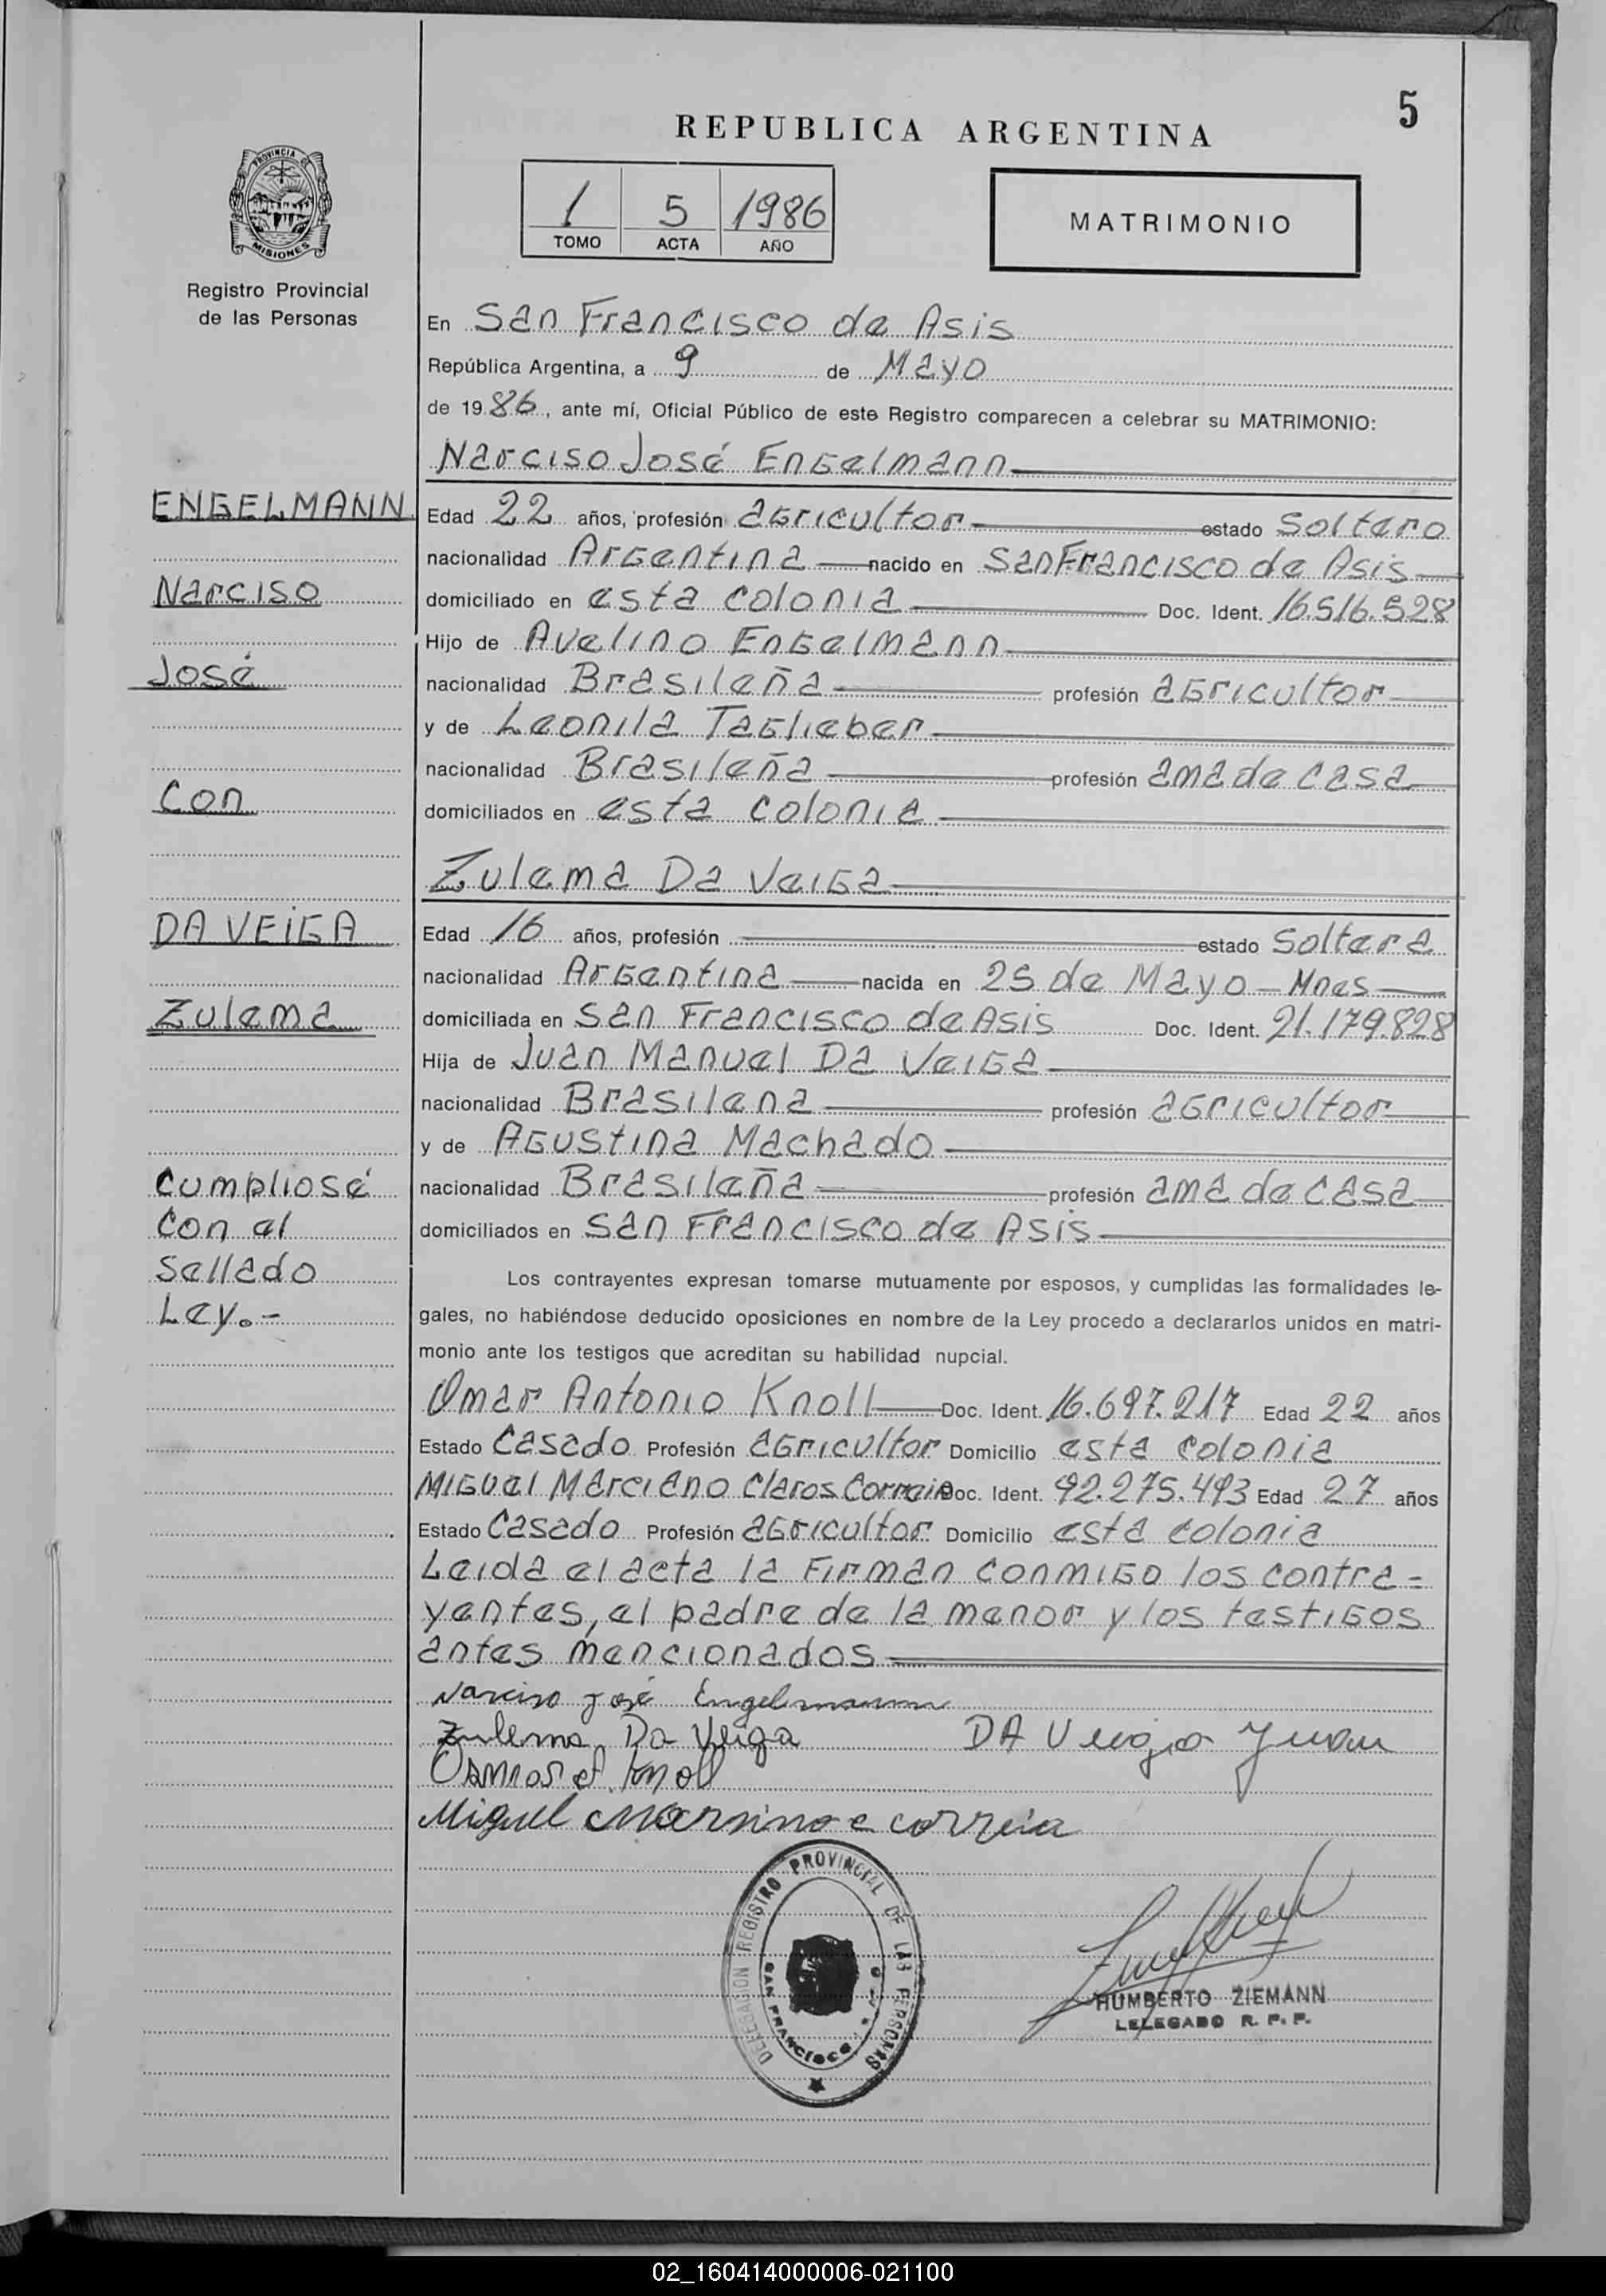 5
REPUBLICA ARGENTINA
1 5 1986
TOMO ACTA AÑO
MATRIMONIO
PROVINCIA DE
MISIONES
Registro Provincial
de las Personas
En San Francisco de Asis
República Argentina, a 9 de Mayo
de 1986, ante mí, Oficial Público de este Registro comparecen a celebrar su MATRIMONIO:
Narciso José Engelmann
ENGELMANN
Edad 22 años, profesión agricultor estado Soltero
nacionalidad Argentina nacido en San Francisco de Asis
Narciso
domiciliado en esta colonia Doc. Ident. 16.516.528
Hijo de Avelino Engelmann
José
nacionalidad Brasileña profesión agricultor
y de Leonila Taglieber
nacionalidad Brasileña profesión ama de casa
Con
domiciliados en esta colonia
Zulema Da Veiga
DA VEIGA
Edad 16 años, profesión estado Soltera
nacionalidad Argentina nacida en 25 de Mayo - Mnes
Zulema
domiciliada en San Francisco de Asis Doc. Ident. 21.179.828
Hija de Juan Manuel Da Veiga
nacionalidad Brasilena profesión agricultor
y de Agustina Machado
Cumpliosé
nacionalidad Brasileña profesión ama de casa
con el
domiciliados en San Francisco de Asis
Sellado
Ley.-
Los contrayentes expresan tomarse mutuamente por esposos, y cumplidas las formalidades le-
gales, no habiéndose deducido oposiciones en nombre de la Ley procedo a declararlos unidos en matri-
monio ante los testigos que acreditan su habilidad nupcial.
Omar Antonio Knoll Doc. Ident. 16.697.217 Edad 22 años
Estado Casado Profesión agricultor Domicilio esta colonia
Miguel Marciano Claros Correia Doc. Ident. 92.275.493 Edad 27 años
Estado Casado Profesión agricultor Domicilio esta colonia
Leida el acta la Firman conmigo los contra=
yentes, el padre de la menor y los testigos
antes mencionados
Narciso José Engelmann
Zulema Da Veiga DA Veiga Juan
Knoll
Miguel correia
DELEGACION REGISTRO PROVINCIAL DE LAS PERSONAS
SAN FRANCISCO
HUMBERTO ZIEMANN
LELEGADO R. P. P.
02_160414000006-021100